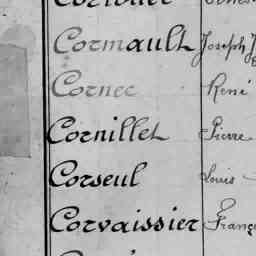 Cormault Joseph
Cornec René
Cornillet Pierre
Corseul Louis
Corvaissier Franç